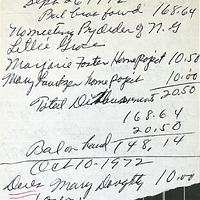 Sept 26 1972
Bal bro's fwd 168.64
No meeting By order of N. G
Lillie Grose
Marjorie Foster Home Project 10.50
Mary Home project 10.00
Total Disbursement 20.50
168.64
20.50
Bal on hand 148,14
Oct 10 - 1972
Dues Mary Doughty 10.00